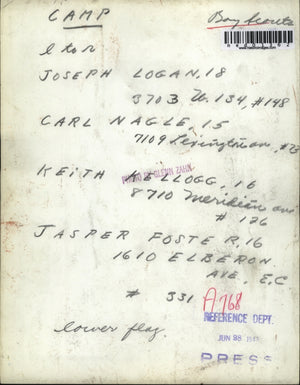 CAMP
Boy Scouts
l to r
JOSEPH LOGAN, 18
3703 W. 134, #148
CARL NAGLE, 15
7109 Lexington ave,
PHOTO BY GLENN ZAHN
KEITH KELLOGG, 16
8710 Meridian ave
# 126
JASPER FOSTER, 16
1610 ELBERON
AVE, E.C
# 331
A768
REFERENCE DEPT.
lower flag.
PRESS